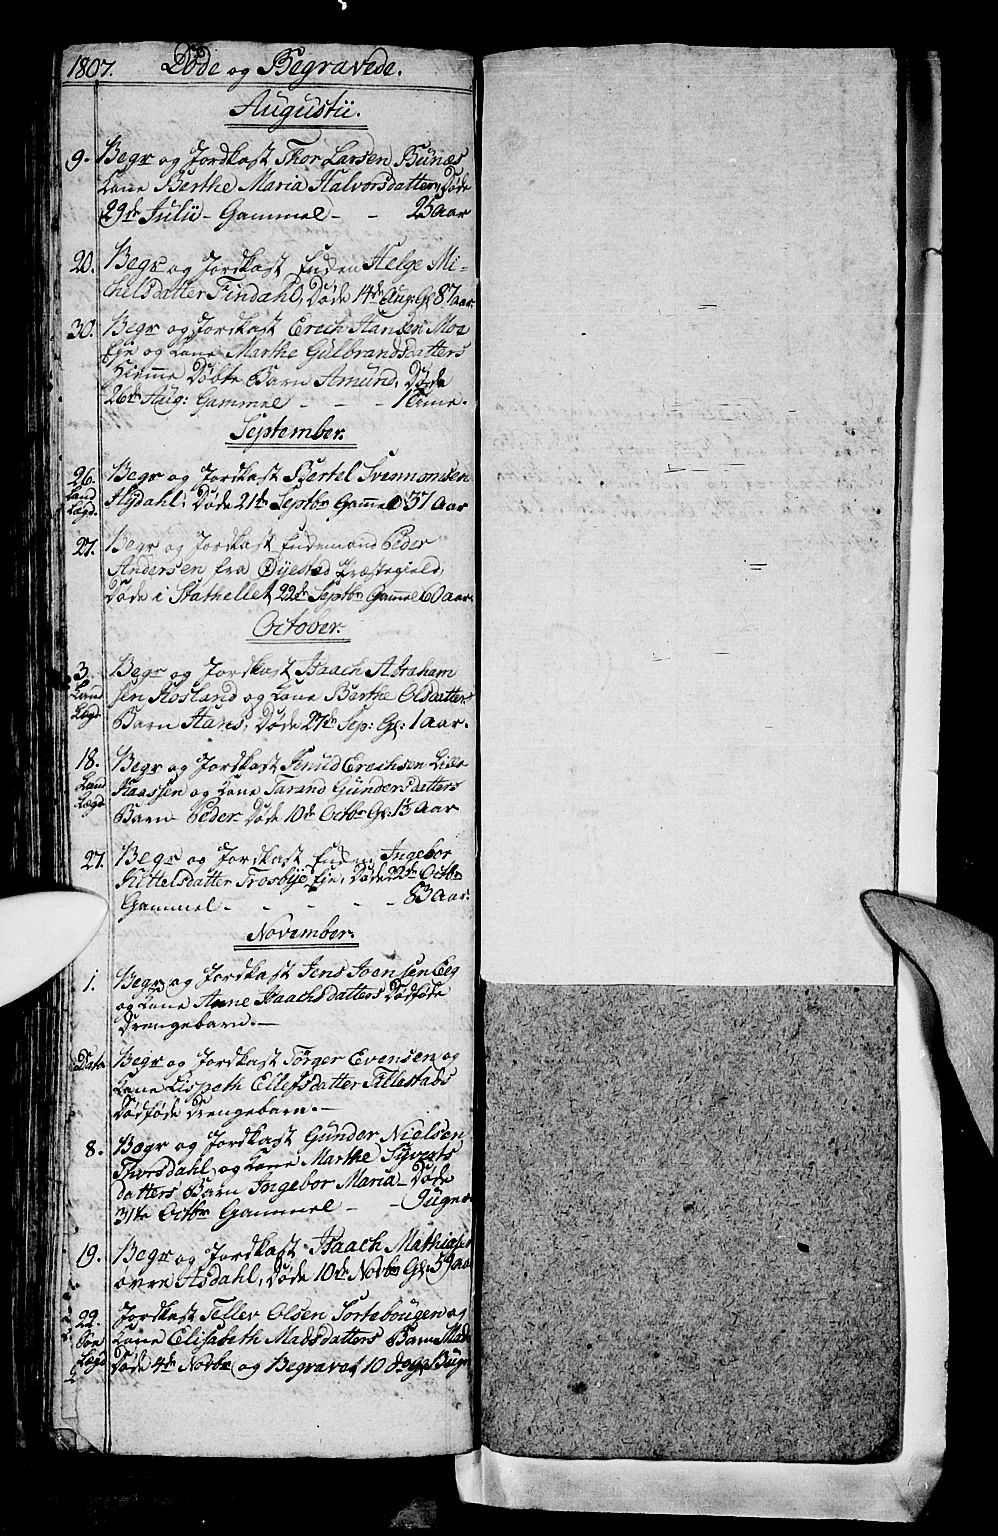 1807. Døde og Begravede.
Augustii.
9. Begr og Jordkast Thor Larsen Bunæs
Kone Berthe Maria Halvorsdatter, Døde
29de Julii - Gammel - - 25 aar
20. Begr og Jordkast Enden Helge Mi-
chelsdatter Findahl, Døde 14de Aug: Gl. 87 aar
30. Begr og Jordkast Erech Hansen Moe
Eje og Kone Marthe Gulbrandsdatters
Hiemme Døbte Barn Amund, Døde
26de Aug: Gammel - - -
September.
26. Begr og Jordkast Bertel Svennomsen
Land Lægd. Døde 21de Septbr Gammel 37 aar
27. Begr og Jordkast Endemand Peder
Andersen fra Øyestad Præstegield,
Døde i Stathellet 22de Septbr Gammel 60 aar
October.
3. Begr og Jordkast Isaach Abraham
Land sen Rosland og Kone Berthe Olsdatters
Lægd Barn Hans, Døde 27de Sep: Gl: 1 aar.
18. Begr og Jordkast Knud Erechsen Lille
Land Kaassen og Kone Tarand Gundersdatters
Lægd Barn Peder Døde 10de Octbr Gl: 13 aar
27. Begr og Jordkast Enden Ingebor
Kittelsdatter Trosbye Eje, Døde 22de Octbr
Gammel - - - - - 83 aar.
November.
1. Begr og Jordkast Jens Joensen Eeg
og Kone Anne Isaachsdatters Dødføde
Drengebarn. -
Dato Begr og Jordkast Torger Evensen og
Kone Lispeth Ellefsdatter Tillestads
Dødføde Drengebarn. -
8. Begr og Jordkast Gunder Nielsen
Thorsdahl og Kone Marthe Syverts
datters Barn Ingebor Maria - Døde
31te Octbr Gammel - - 9 uger
19. Begr og Jordkast Isaach Mathiasen
øvre Asdahl, Døde 10de Novbr Gl: 59 aar
22. Jordkast Tellev Olsen Sortebougen og
Søe Kone Elisabeth Madsdatters Barn Mads
Lægd Døde 4de Novbr og Begravet 10de